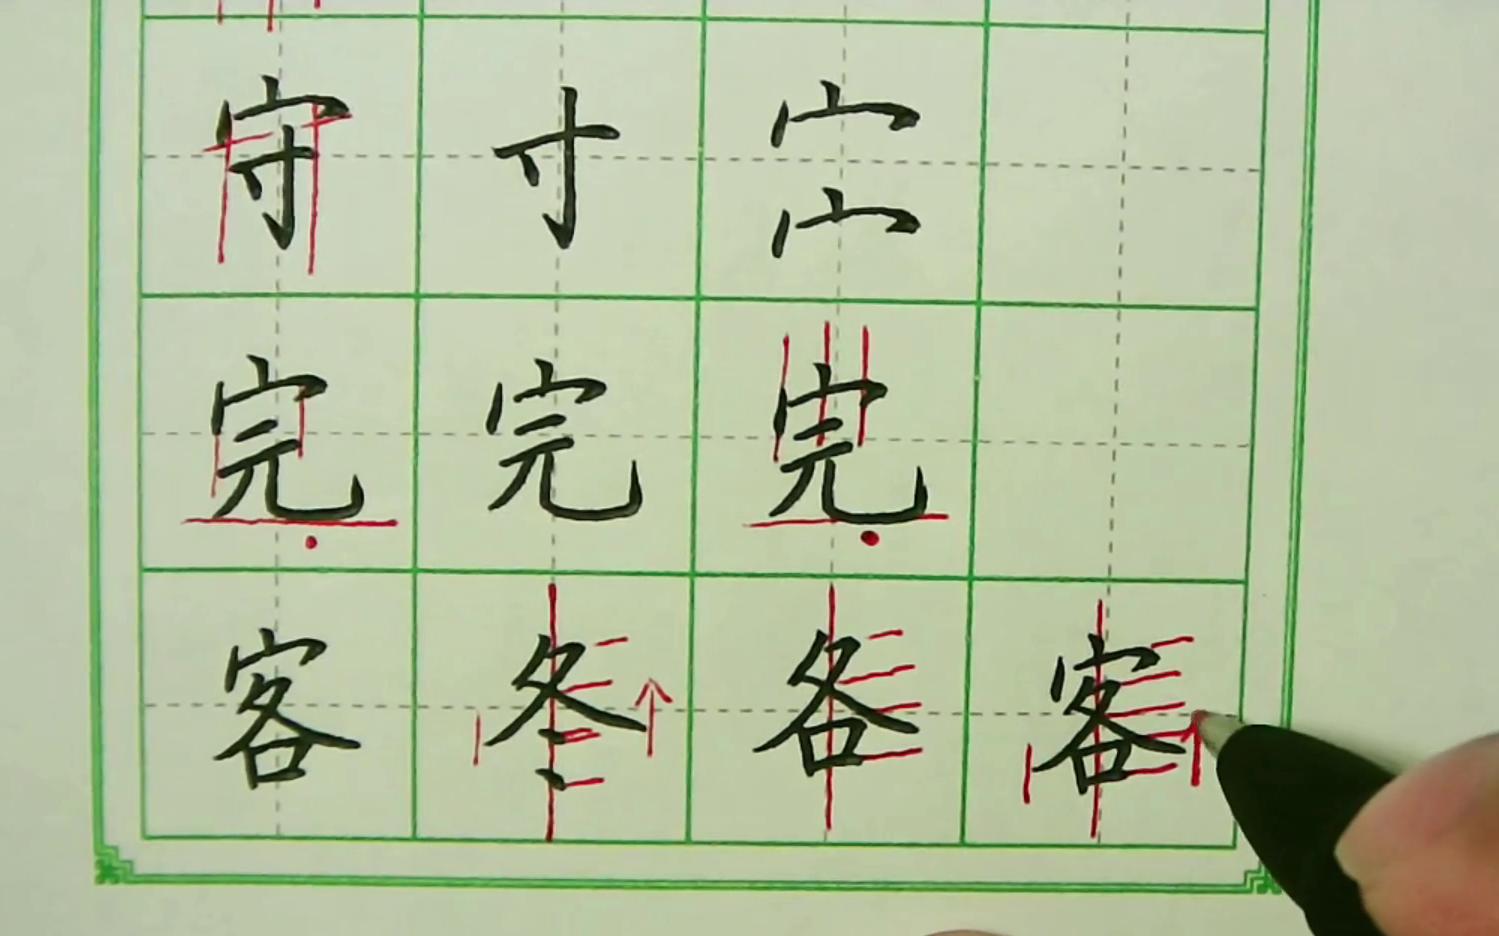 守 寸 宀 宀
完 完 完
客 冬 各 客